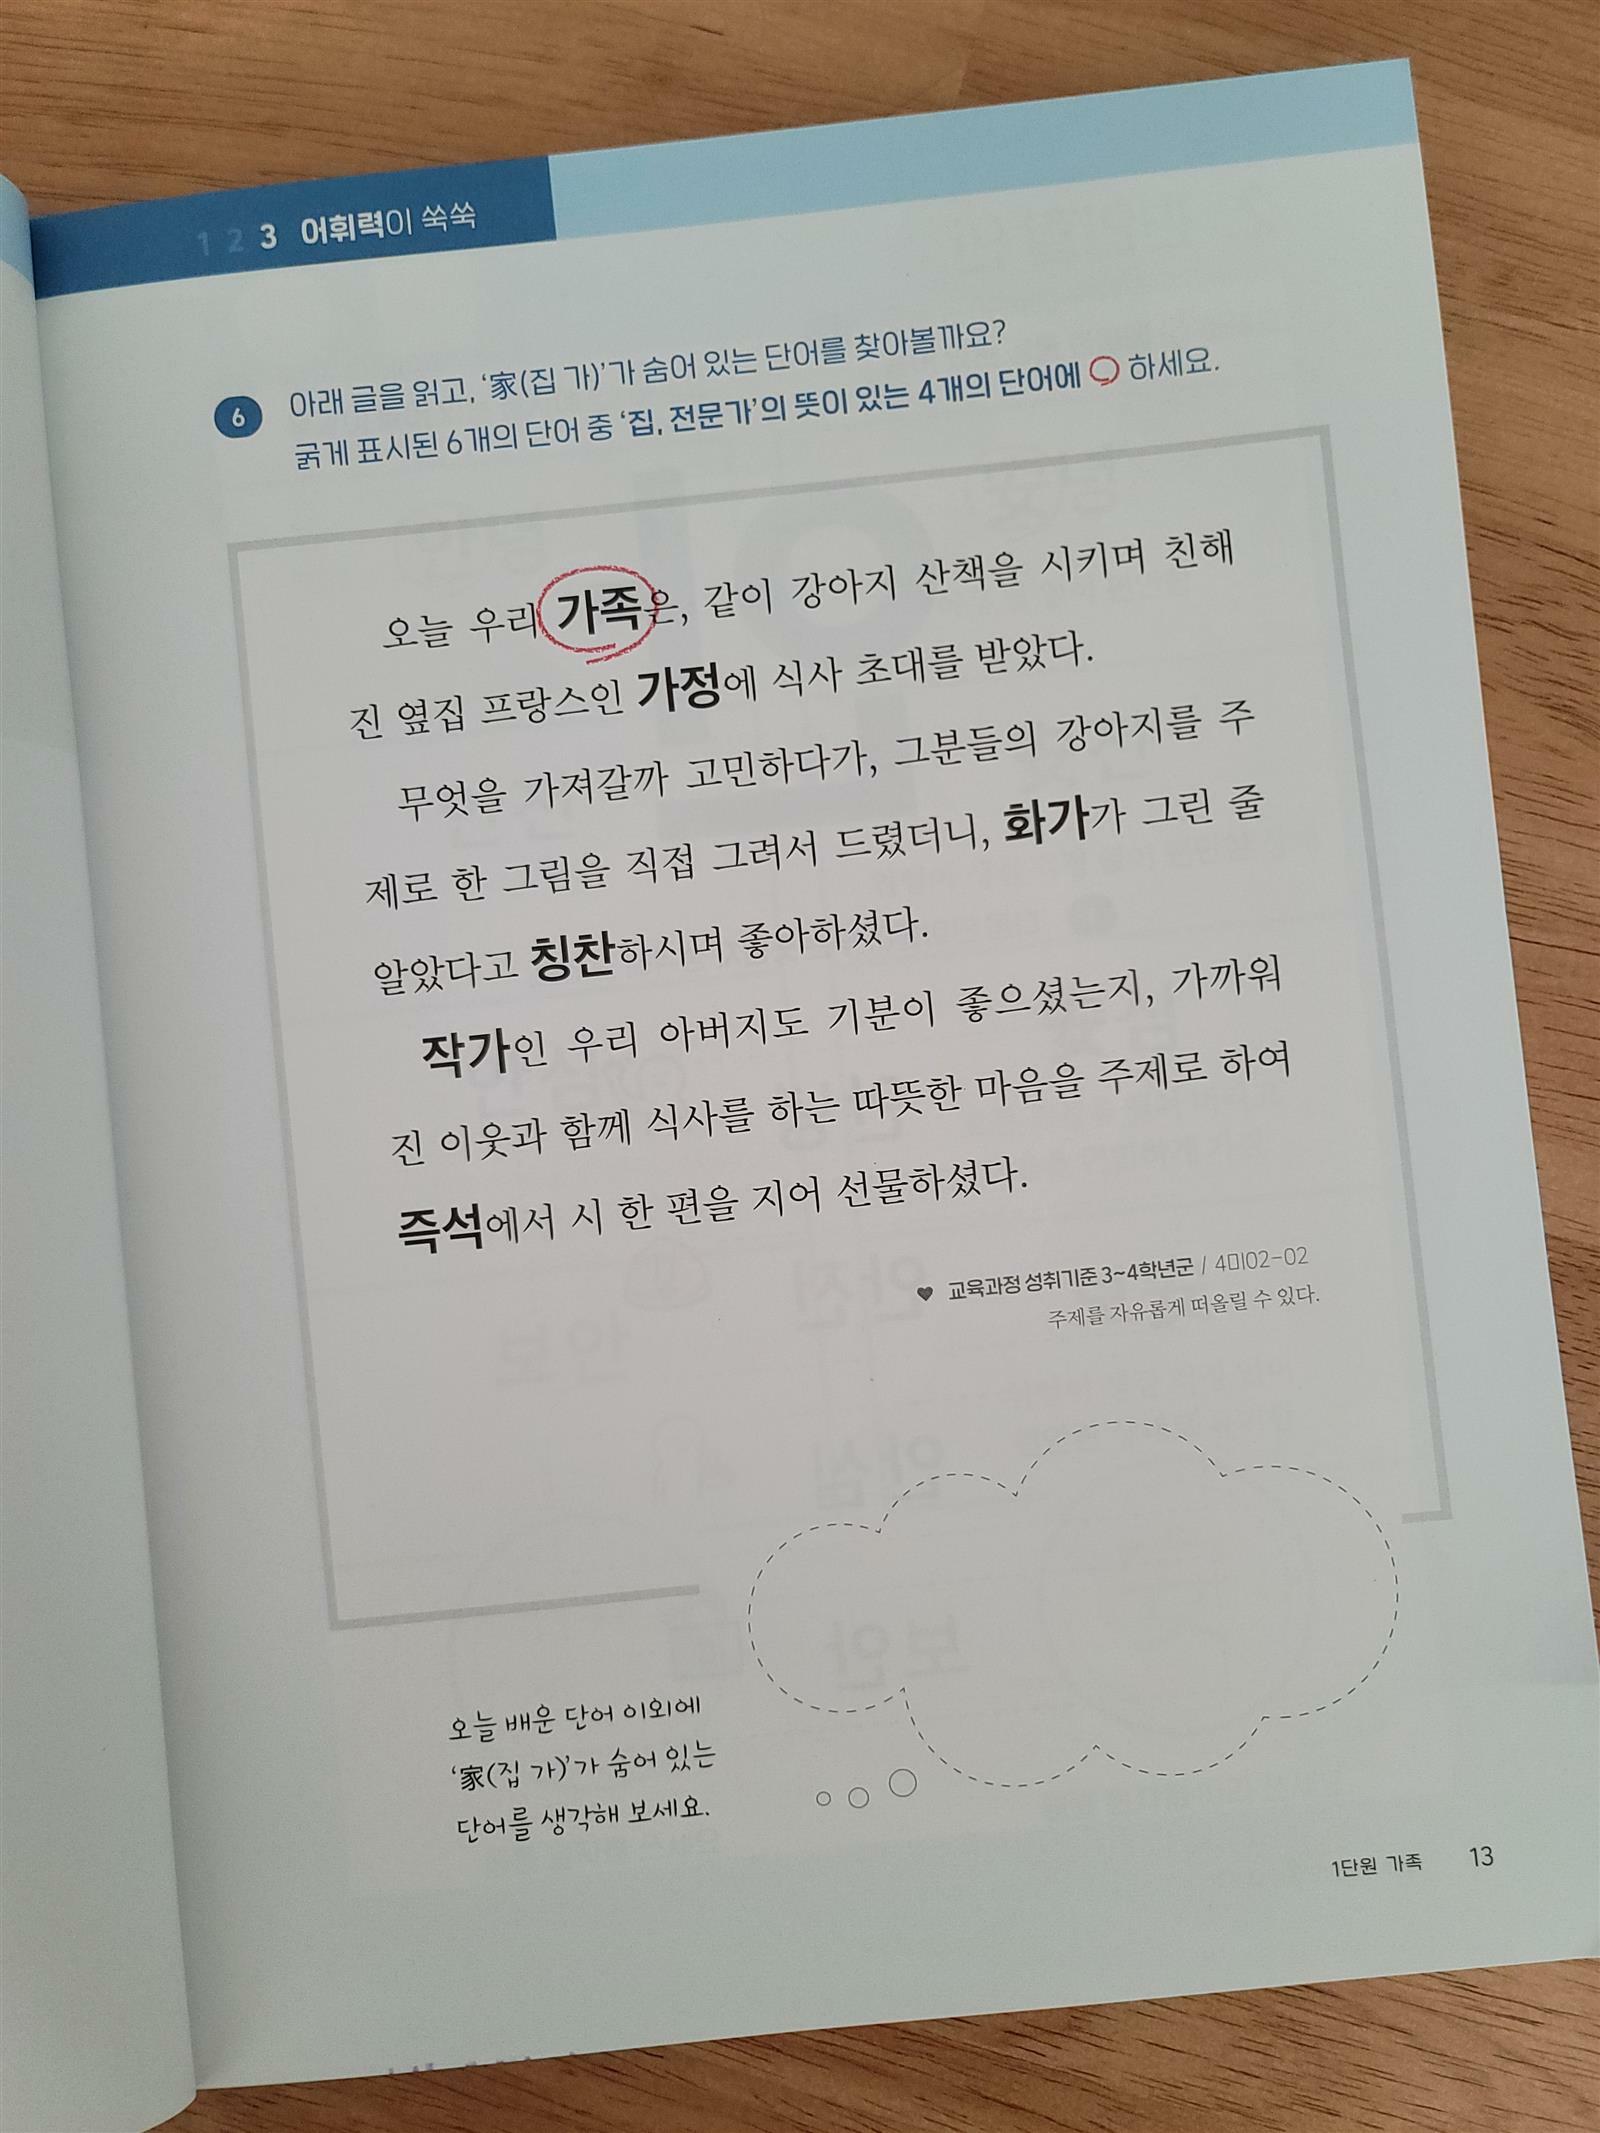 1 2 3 어휘력이 쑥쑥
6 아래 글을 읽고, ‘家(집 가)’가 숨어 있는 단어를 찾아볼까요?
굵게 표시된 6개의 단어 중 ‘집, 전문가’의 뜻이 있는 4개의 단어에 하세요.
오늘 우리 가족은, 같이 강아지 산책을 시키며 친해
진 옆집 프랑스인 가정에 식사 초대를 받았다.
무엇을 가져갈까 고민하다가, 그분들의 강아지를 주
제로 한 그림을 직접 그려서 드렸더니, 화가가 그린 줄
알았다고 칭찬하시며 좋아하셨다.
작가인 우리 아버지도 기분이 좋으셨는지, 가까워
진 이웃과 함께 식사를 하는 따뜻한 마음을 주제로 하여
즉석에서 시 한 편을 지어 선물하셨다.
♥ 교육과정 성취기준 3~4학년군 / 4미02-02
주제를 자유롭게 떠올릴 수 있다.
오늘 배운 단어 이외에
‘家(집 가)’가 숨어 있는
단어를 생각해 보세요.
1단원 가족 13